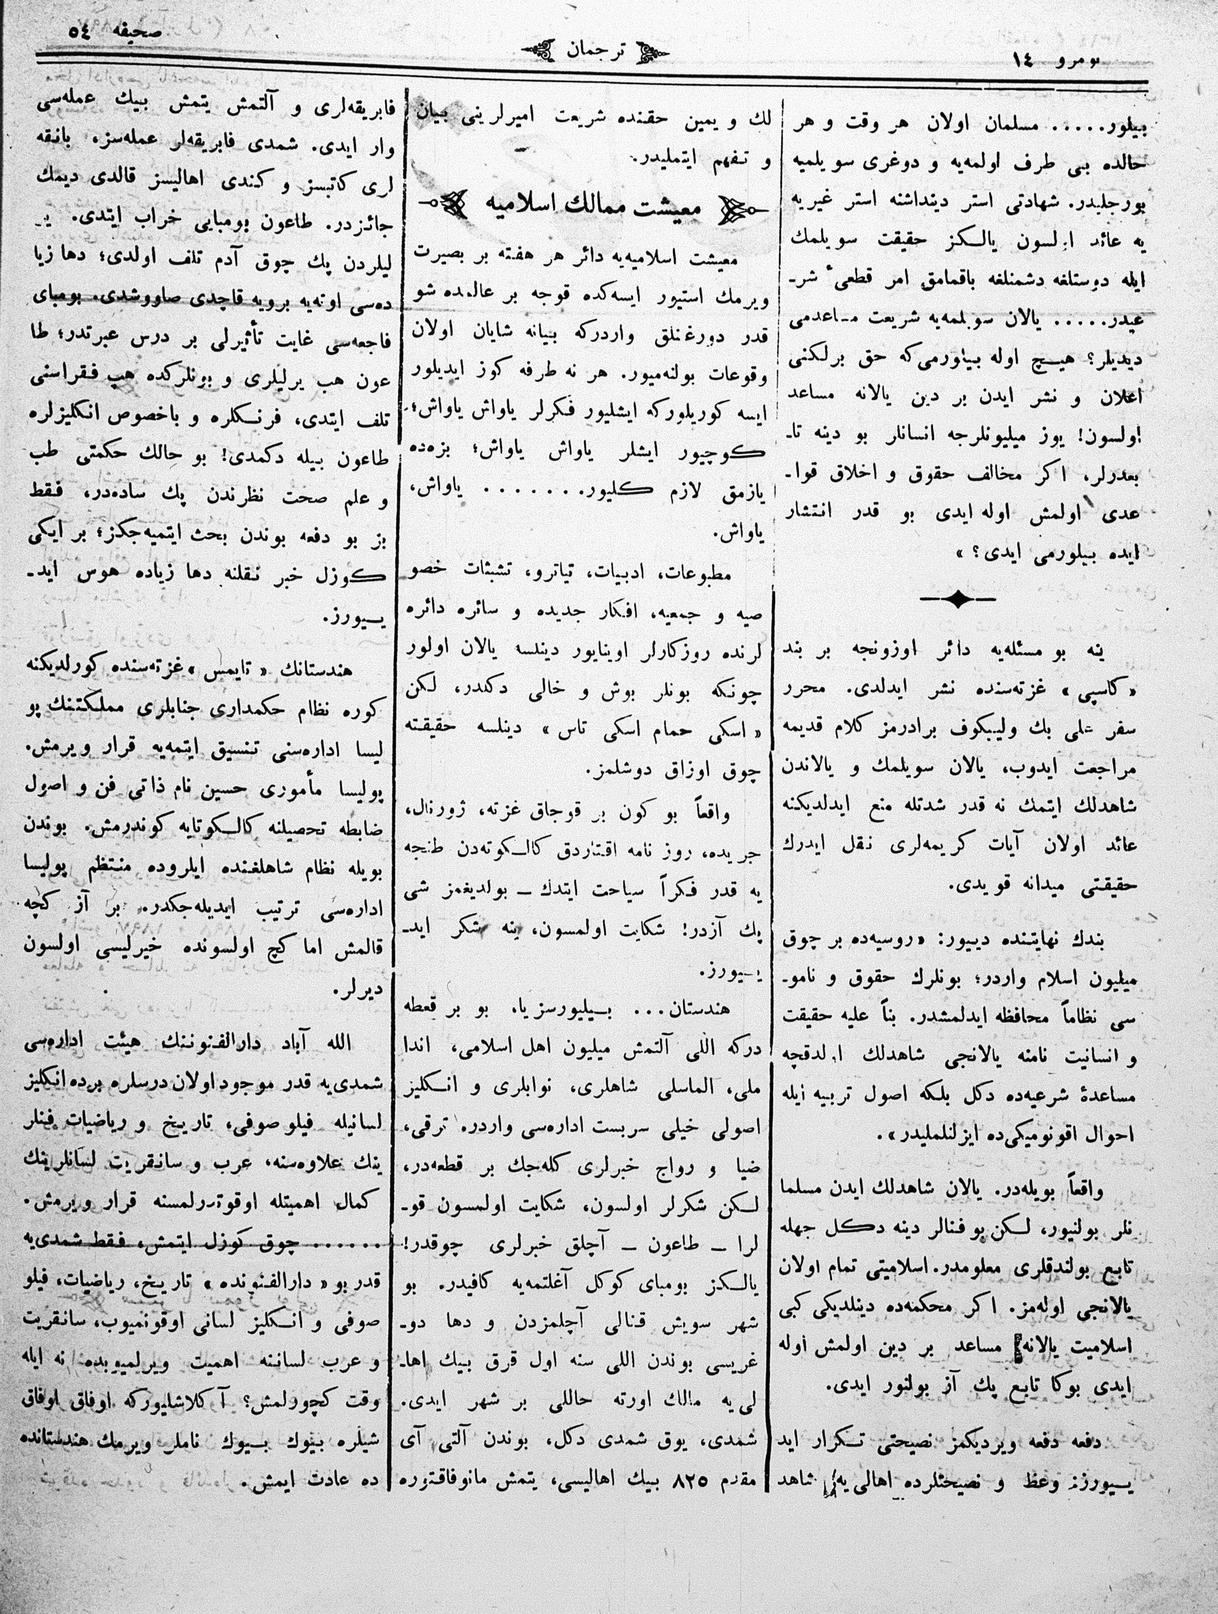 نومرو ١٤
ترجمان
صحیفه ٥٤
بیلور..... مسلمان اولان هر وقت و هر
حالده بی طرف اولمه‌یه و دوغری سویلمیه
بورجلیدر. شهادتی استر دینداشنه استر غیریه
یه عائد اولسون یالـکز حقیقت سویلمك
ایله دوستلغه دشمنلغه باقمامق امر قطعیٔ شرـ
عیدر..... یالان سویلمه‌یه شریعت مساعدمی
دیدیلر؟ هیـچ اوله بیلورمی‌که حق برلکنی
اعلان و نشر ایدن بر دین یالانه مساعد
اولسون! یوز میلیونلرجه انسانلر بو دینه تاـ
بعدرلر، اکر مخالف حقوق و اخلاق قواـ
عدی اولمش اوله ایدی بو قدر انتشار
ایده بیلورمی ایدی؟ »
ینه بو مسئله‌یه دائر اوزونجه بر بند
«کاسپی» غزته‌سنده نشر ایدلدی. محرر
سفر علی بك ولیبکوف برادرمز کلام قدیمه
مراجعت ایدوب، یالان سویلمك و یالاندن
شاهدلك ایتمك نه قدر شدتله منع ایدلدیکنه
عائد اولان آیات کریمه‌لری نقل ایدرك
حقیقتی میدانه قویدی.
بندك نهایتنده دییور: «روسیه‌ده بر چوق
میلیون اسلام واردر؛ بونلرك حقوق و ناموـ
سی نظاماً محافظه ایدلمشدر. بناً علیه حقیقت
و انسانیت نامنه یالانجی شاهدلك اولدقچه
مساعدهٔ شرعیه‌ده دکل بلکه اصول تربیه ایله
احوال اقونومیکی‌ده ایزلنلمیدر».
واقعاً بویله‌در. یالان شاهدلك ایدن مسلما
نلر بولنیور، لـکن بو فنالر دینه دکـل جهله
تابـع بولندقلری معلومدر. اسلامیتی تمام اولان
یالانجی اوله‌مز. اکر محکمه‌ده دینلدیکی کبی
اسلامیت یالانه مساعد بر دین اولمش اوله
ایدی بوکا تابـع پك آز بولنور ایدی.
دفعه دفعه ویردیکمز نصیحتی تـکرار اید
یـیورز: وعظ و نصیحتلرده اهالی‌یه شاهد
لك و یمین حقنده شریعت امیرلرینی بیان
و تـفهم ایتملیدر.
معیشت ممالك اسلامیه
معیشت اسلامیه‌یه دائر هر هفته بر بصیرت
ویرمك استیور ایسه‌کده قوجه بر عالمده شو
قدر دورغنلق واردرکه بیانه شایان اولان
وقوعات بولنه‌میور. هر نه طرفه کوز ایدیلور
ایسه کوریلورکه ایشلیور فـکرلر یاواش یاواش؛
کـوچیور ایشلر یاواش یاواش؛ بزه‌ده
یازمق لازم کـلیور....... یاواش،
یاواش.
مطبوعات، ادبیات، تیاترو، تشبثات خصو
صیه و جمعیه، افکار جدیده و سائره دائره
لرنده روزکارلر اوینایور دینلسه یالان اولور
چونکه بونلر بوش و خالی دکلدر، لـکن
«اسکی حمام اسکی تاس» دینلسه حقیقته
چوق اوزاق دوشلمز.
واقعاً بو کون بر قوجاق غزته، ژورنال،
جریده، روز نامه اقتاردق کالـکوته‌دن طنجه
یه قدر فـکراً سیاحت ایتدك ـ بولدیغمز شی
پك آزدر! شکایت اولمسون، ینه شکر ایدـ
یـیورز.
هندستان... بـیلیورسز یا، بو بر قعطه
درکه اللی آلتمش میلیون اهل اسلامی، اندا
ملی، الماسلی شاهلری، نوابلری و انـکلیز
اصولی خیلی سربست اداره‌سی واردر. ترقی،
ضیا و رواج خبرلری کله‌جك بر قطعه‌در،
لـکن شکرلر اولسون، شکایت اولمسون قوـ
لرا ـ طاعون ـ آچلق خبرلری چوقدر!
یالـکز بومبای کوکل آغلتمه‌یه کافیدر. بو
شهر سویش قنالی آچلمزدن و دها دوـ
غریسی بوندن اللی سنه اول قرق بیك اهاـ
لی‌یه مالك اورته حاللی بر شهر ایدی.
شمدی، یوق شمدی دکل، بوندن آلتی آی
مقدم ٨٢٥ بیك اهالیسی، یتمش مانوفاقتوره
فابریقه‌لری و آلتمش یتمش بیك عمله‌سی
وار ایدی. شمدی فابریقه‌لر عمله‌سز، بانقه
لری کاتبسز و کندی اهالیسز قالدی دیمك
جائزدر. طاعون بومبایی خراب ایتدی. یر
لیلردن پك چوق آدم تلف اولدی؛ دها زیا
ده‌سی اوته‌یه برویه قاچدی صاووشدی. بومبای
فاجعه‌سی غایت تأثیرلی بر درس عبرتدر؛ طا
عون هب یرلیلری و بونلرکده هپ فـقراسنی
تلف ایتدی، فرنـکلره و باخصوص انکلیزلره
طاعون بیله دکمدی! بو حالك حکمتی طب
و علم صحت نظرندن پك ساده‌در، فـقط
بز بو دفعه بوندن بحث ایتمیه‌جکز؛ بر ایکی
کـوزل خبر نـقلنه دها زیاده هوس ایدـ
یـیورز.
هندستانك «تایمس» غزته‌سنده کورلدیکنه
کوره نظام حکمداری جنابلری مملـکتنك پو
لیسا اداره‌سنی تـنسیق ایتمه‌یه قرار ویرمش.
پولیسا مأموری حسین نام ذاتی فن و اصول
ضابطه تحصیلنه کالـکوتایه کوندرمش. بوندن
بویله نظام شاهلغنده ایلروده منتظم پولیسا
اداره‌سی ترتیب ایدیله‌جکدر. بر آز کچه
قالمش اما کچ اولسونده خیرلیسی اولسون
دیرلر.
الله آباد دارالفنوننك هیئت اداره‌سی
شمدی‌یه قدر موجود اولان درسلره برده انکلیز
لسانیله فیلوصوفی، تاریـخ و ریاضیات فنلر
ینك علاوه‌سنه، عرب و سانقریت لسانلرینك
کمال اهمیتله اوقوتدرلمسنه قرار ویرمش.
....... چوق کوزل ایتمش، فـقط شمدی‌یه
قدر بو «دارالفنونده» تاریـخ، ریاضیات، فیلو
صوفی و انـکلیز لسانی اوقونمیوب، سانقریت
و عرب لساننه اهمیت ویرلمیوبده نه ایله
وقت کچورلمش؟ آکلاشلیورکه اوفاق اوفاق
شیلره بیوك بـیوك ناملر ویرمك هندستانده
ده عادت ایمش.